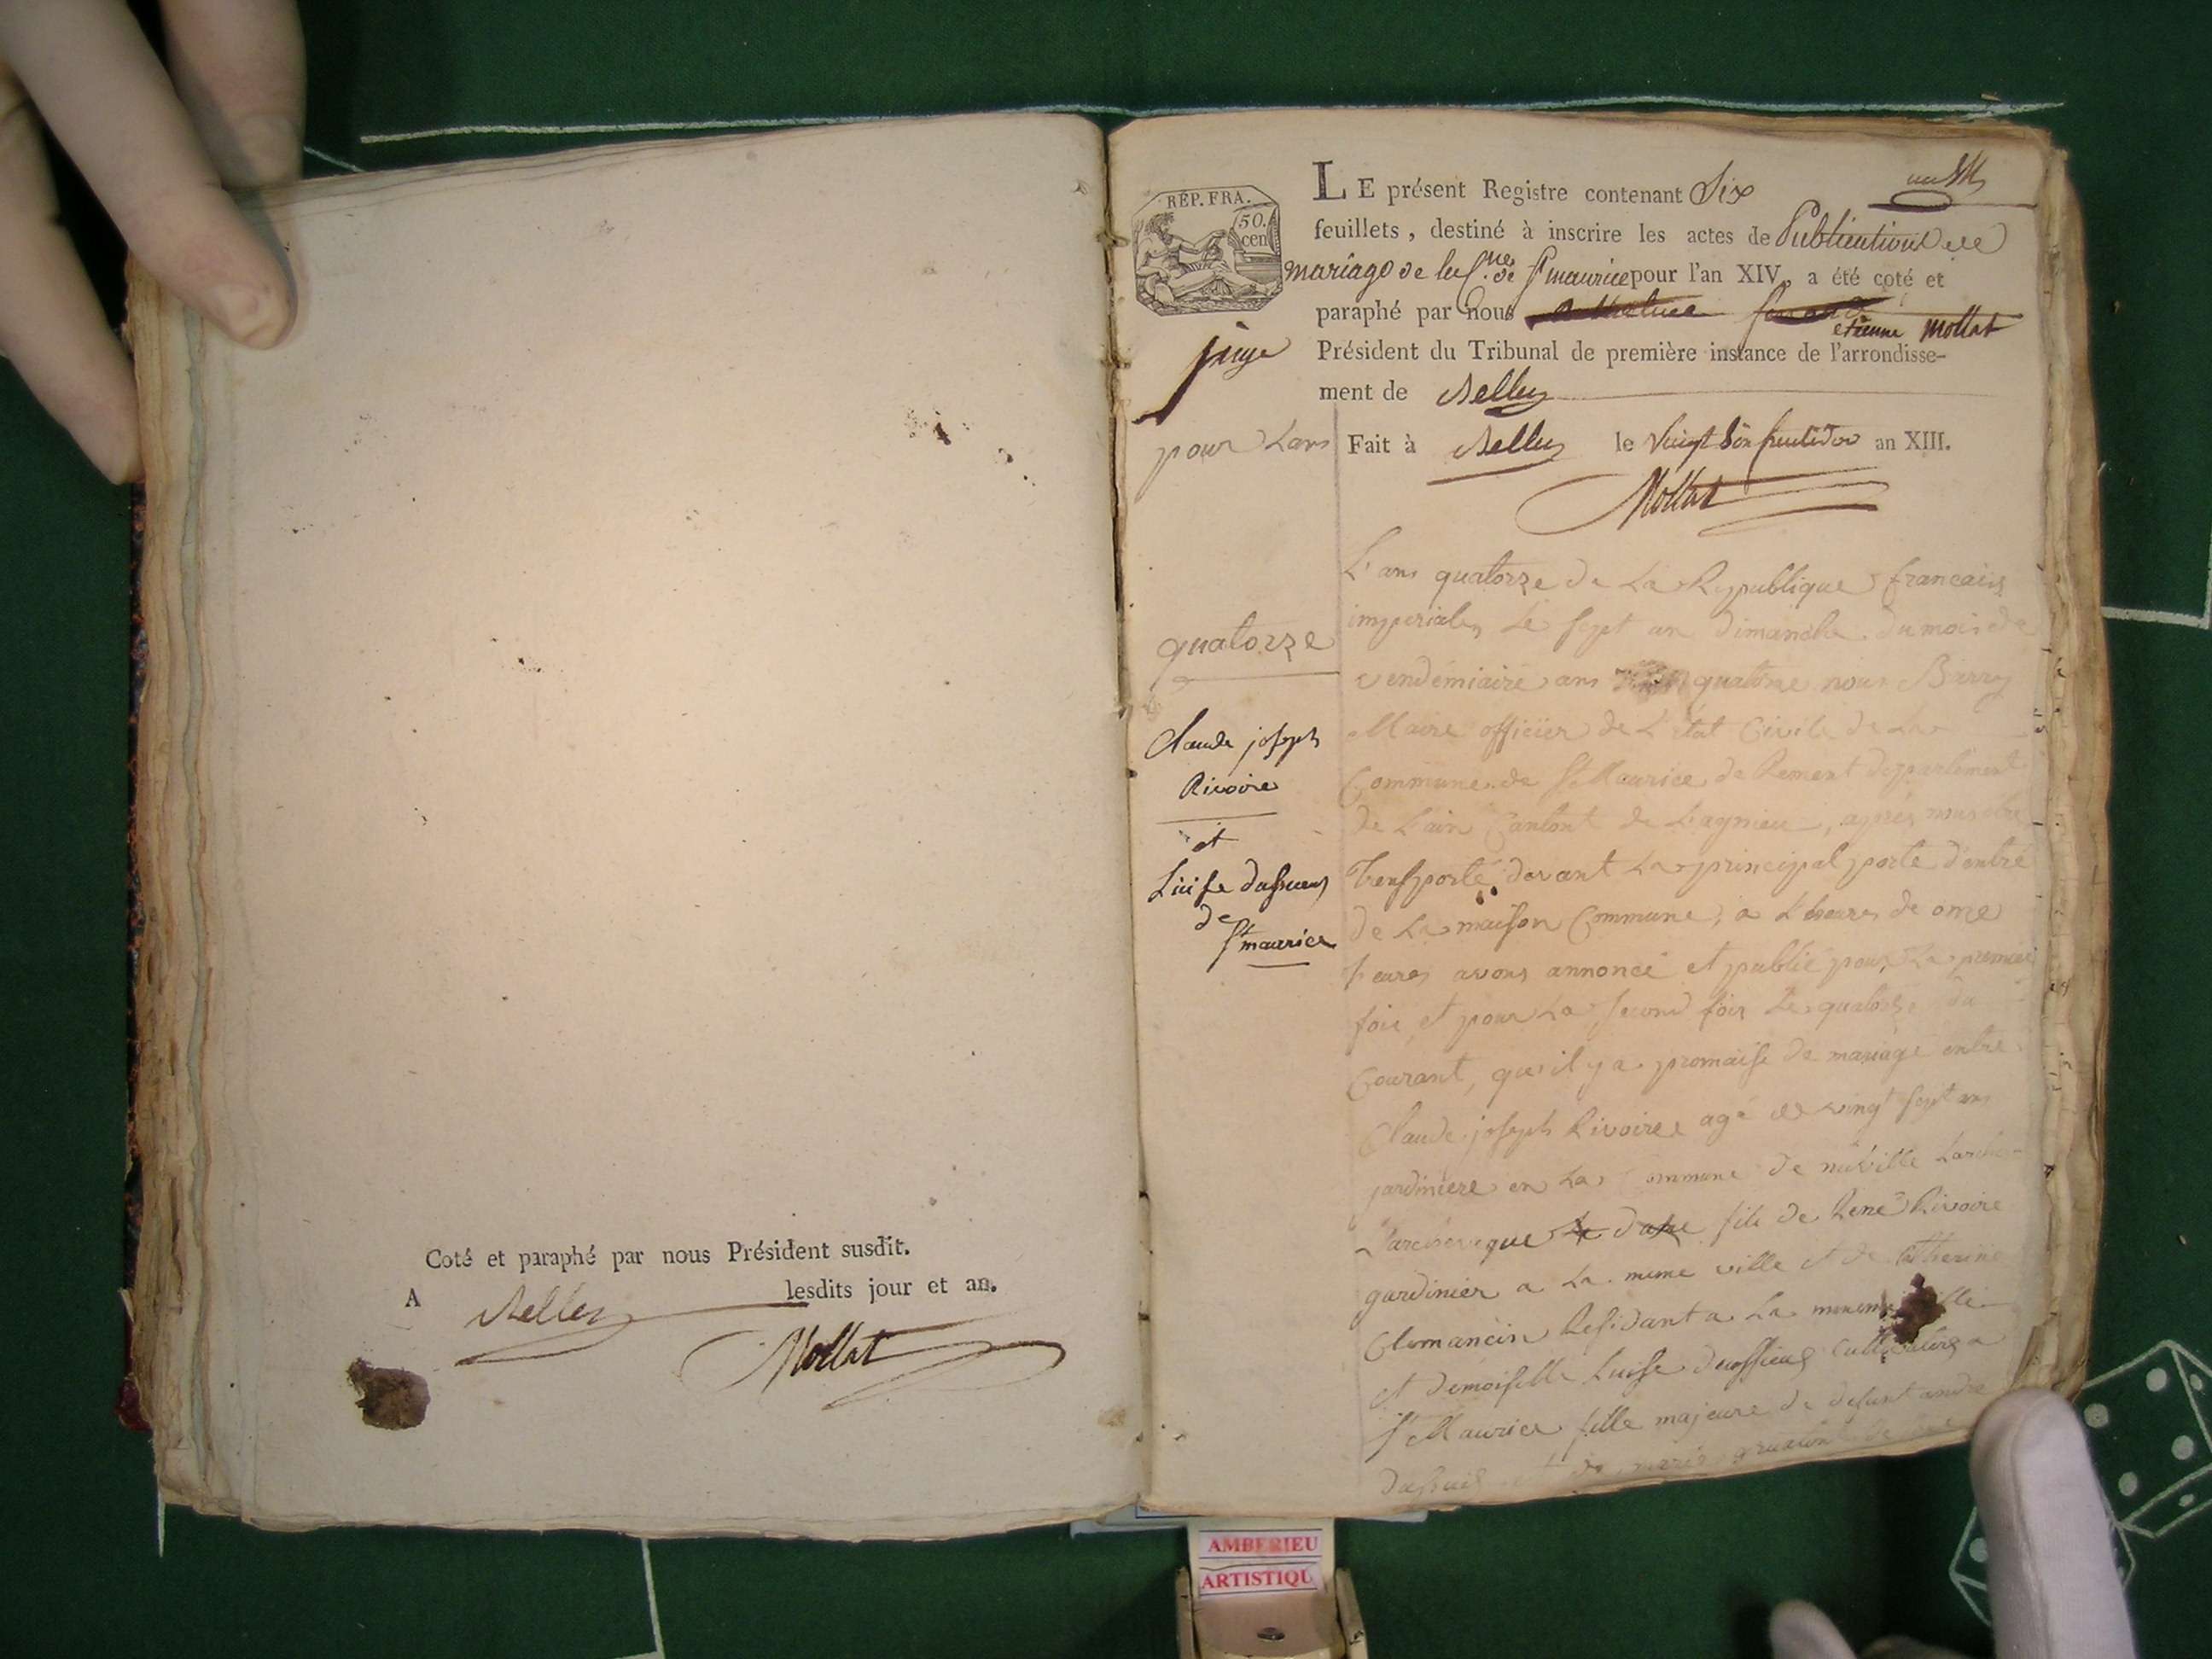 Coté et paraphé par nous Président susdit.
A Belley lesdits jour et an.
Mollat
RÉP. FRA.
50.
cen
LE présent Registre contenant Six
feuillets, destiné à inscrire les actes de Publications de
mariage de la Cne de St maurice pour l'an XIV, a été coté et
paraphé par nous
etienne Mollat
juge
Président du Tribunal de première instance de l'arrondisse-
ment de Belley
Fait à Belley le Vingt fructidor an XIII.
Mollat
pour Lans
quatorze
Claude joseph
Rivoire
et
Luise
de
St maurice
L'ans quatorze de La Republique francaise
imperiale, Le sept an dimanche du mois de
vendémiaire ans quatorze nous Barry
Maire officier de L'etat Civile de La
Commune de St Maurice de Rement departement
de L'ain Canlont de Lagnieu, après nous etre
Transporté devant La principal porte d'entré
de La maison Commune, a L'heures de onze
heures avons annoncé et publié pour La premier
fois et pour La second fois Le quatorze du
Courant, que il y a promaise de mariage entre
Claude joseph Rivoire agé de vingt sept ans
jardiniere en La Commune de
L'archeveque fils de René Rivoire
gardinier a La meme ville et de Catherine
Clemancin Residant a La meme ville
et demoiselle Luise
St Maurice fille majeure de defunt andré